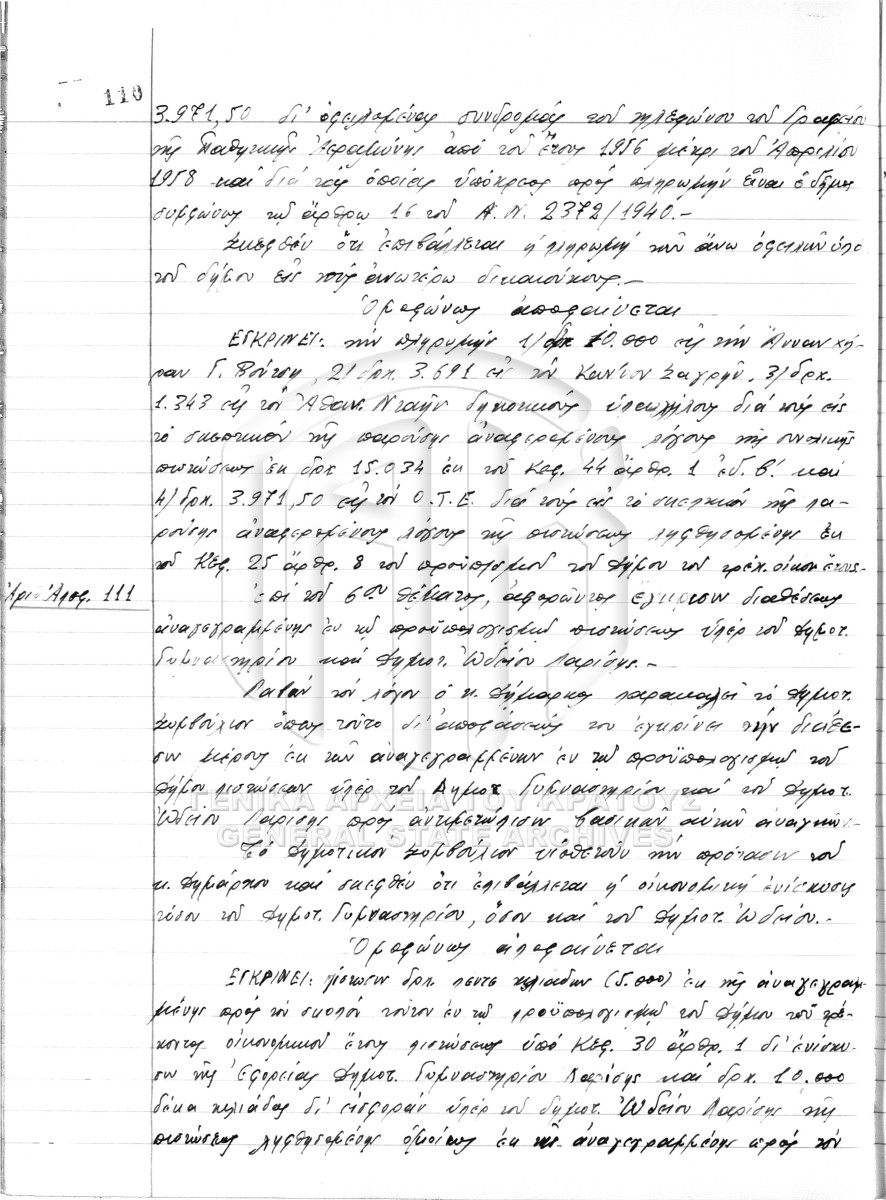 110
3.971,50 δι' ὀφειλομένας συνδρομάς τοῦ τηλεφώνου τοῦ Γραφείου
τῆς Παθητικῆς Ἀεραμύνης ἀπό τοῦ ἔτους 1956 μέχρι τοῦ Ἀπριλίου
1958 καί διά τάς ὁποίας ὑπόχρεος πρός πληρωμήν εἶναι ὁ δῆμος
συμφώνως τῷ ἄρθρῳ 16 τοῦ Α.Ν. 2372/1940.-
Σκεφθέν ὅτι ἐπιβάλλεται ἡ πληρωμή τῶν ἄνω ὀφειλῶν ὑπό
τοῦ δήμου εἰς τούς ἀνωτέρω δικαιούχους.-
Ὁμοφώνως ἀποφαίνεται
ΕΓΚΡΙΝΕΙ: τήν πληρωμήν 1/ δρχ 10.000 εἰς τήν Ἄνναν χή-
ραν Γ. , 2/ δρχ. 3.691 εἰς τόν Κων/νον , 3/ δρχ.
1.343 εἰς τόν Ἀθαν. δημοτικούς ὑπαλλήλους διά τούς εἰς
τό σκεπτικόν τῆς παρούσης ἀναφερομένους λόγους τῆς συνολικῆς
πιστώσεως ἐκ δρχ 15.034 ἐκ τοῦ Κεφ. 44 ἄρθρ. 1 ἐδ. β'. καί
4/ δρχ. 3.971,50 εἰς τόν Ο.Τ.Ε. διά τούς εἰς τό σκεπτικόν τῆς πα-
ρούσης ἀναφερομένους λόγους τῆς πιστώσεως ληφθησομένης ἐκ
τοῦ Κεφ. 25 ἄρθρ. 8 τοῦ προϋπολογισμοῦ τοῦ Δήμου τοῦ τρέχ. οἰκον. ἔτους-
Ἀριθ. Ἀποφ. 111
Ἐπί τοῦ 6ου θέματος, ἀφορῶντος ἔγκρισιν διαθέσεως
ἀναγεγραμμένης ἐν τῷ προϋπολογισμῷ πιστώσεως ὑπέρ τοῦ Δημοτ.
Γυμναστηρίου καί Δημοτ. Ὠδείου Λαρίσης.-
Λαβών τόν λόγον ὁ κ. Δήμαρχος παρακαλεῖ τό Δημοτ.
Συμβούλιον ὅπως τοῦτο δι' ἀποφάσεώς του ἐγκρίνει τήν διάθε-
σιν μέρους ἐκ τῶν ἀναγεγραμμένων ἐν τῷ προϋπολογισμῷ τοῦ
Δήμου πιστώσεων ὑπέρ τοῦ Δημοτ Γυμναστηρίου καί τοῦ Δημοτ.
Ὠδείου Λαρίσης πρός ἀντιμετώπισιν βασικῶν αὐτῶν ἀναγκῶν.-
ΓΕΝΙΚΑ ΑΡΧΕΙΑ ΤΟΥ ΚΡΑΤΟΥΣ
GENERAL STATE ARCHIVES
Τό Δημοτικόν Συμβούλιον υἱοθετοῦν τήν πρότασιν τοῦ
κ. Δημάρχου καί σκεφθέν ὅτι ἐπιβάλλεται ἡ οἰκονομική ἐνίσχυσις
τόσον τοῦ Δημοτ. Γυμναστηρίου, ὅσον καί τοῦ Δημοτ. Ὠδείου.-
Ὁμοφώνως ἀποφαίνεται
ΕΓΚΡΙΝΕΙ: πίστωσιν δρχ. πέντε χιλιάδων (5.000) ἐκ τῆς ἀναγεγραμ-
μένης πρός τόν σκοπόν τοῦτον ἐν τῷ προϋπολογισμῷ τοῦ Δήμου τοῦ τρέ-
χοντος οἰκονομικοῦ ἔτους πιστώσεως ὑπό Κεφ. 30 ἄρθρ. 1 δι' ἐνίσχυ-
σιν τῆς Ἐφορείας Δημοτ. Γυμναστηρίου Λαρίσης καί δρχ. 10.000
δέκα χιλιάδας δι' εἰσφοράν ὑπέρ τοῦ δημοτ. Ὠδείου Λαρίσης τῆς
πιστώσεως ληφθησομένης ὁμοίως ἐκ τῆς ἀναγεγραμμένης πρός τόν